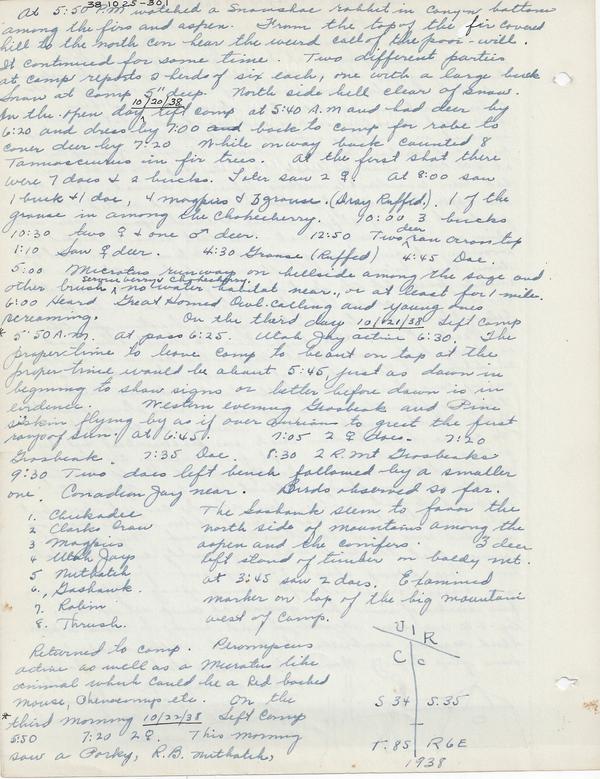 38.1025-30.1
At 5:50 P.M watched a Snowshoe rabbit in canyon bottom
among the firs and aspen. From the top of the fir covered
hill to the north can hear the weird call of the poor-will.
It continued for some time. Two different parties
at camp reports 2 herds of six each, one with a large buck
Snow at camp 5" deep. North side hill clear of snow.
On the open day 10/20/38 left camp at 5:40 A.M and had deer by
6:20 and dress by 7:00 and back to camp for robe to
cover deer by 7:20 While on way back counted 8
Tamiasciurus in fir trees. At the first shot there
were 7 does & 2 bucks. Later saw 2 ♀. At 8:00 saw
1 buck & 1 doe, 4 magpies & 3 grouse. (Gray Ruffed). 1 of the
grouse in among the Chokecherry. 10:00 3 bucks
10:30 two ♀ & one ♂ deer. 12:50 Two deer ran across top
1:10 Saw ♀ deer. 4:30 Grouse (Ruffed) 4:45 Doe.
5:00 Microtus runways on hillside among the sage and
other brush serviceberry & chokecherry. no water habitat near, or at least for 1 mile.
6:00 Heard Great Horned Owl calling and young ones
screaming. On the third day 10/21/38 Left Camp
* 5:50 A.M. At pass 6:25. Utah Jay active 6:30. The
proper time to leave camp to be out on top at the
proper time would be about 5:45 just as dawn is
beginning to show signs or better before dawn is in
evidence. Western evening Grosbeak and Pine
siskin flying by as if over anxious to greet the first
rays of sun. at 6:45. 7:05 2 ♀ does. 7:20
Grosbeak. 7:35 Doe. 8:30 2 R.Mt Grosbeaks
9:30 Two does left bench followed by a smaller
one. Canadian Jay near. Birds observed so far.
1. Chickadee
2 Clarks Craw
3 Magpies
4 Utah Jays
5 Nuthatch
6. Goshawk.
7. Robin
8. Thrush.
The Goshawk seem to favor the
north side of mountains among the
aspen and the conifers. 3 deer
left stand of timber on baldy mt.
at 3:45 saw 2 does. Examined
marker on top of the big mountain
west of camp.
Returned to camp. Peromyscus
active as well as a Microtus like
animal which could be a Red backed
mouse, Phenacomys etc. On the
* third morning 10/22/38 Left Camp
5:50 7:20 2 ♀. This morning
saw a Porky, R.B. Nuthatch,
U | R
C | C
S 34 | S.35
T.85 | R6E
1938